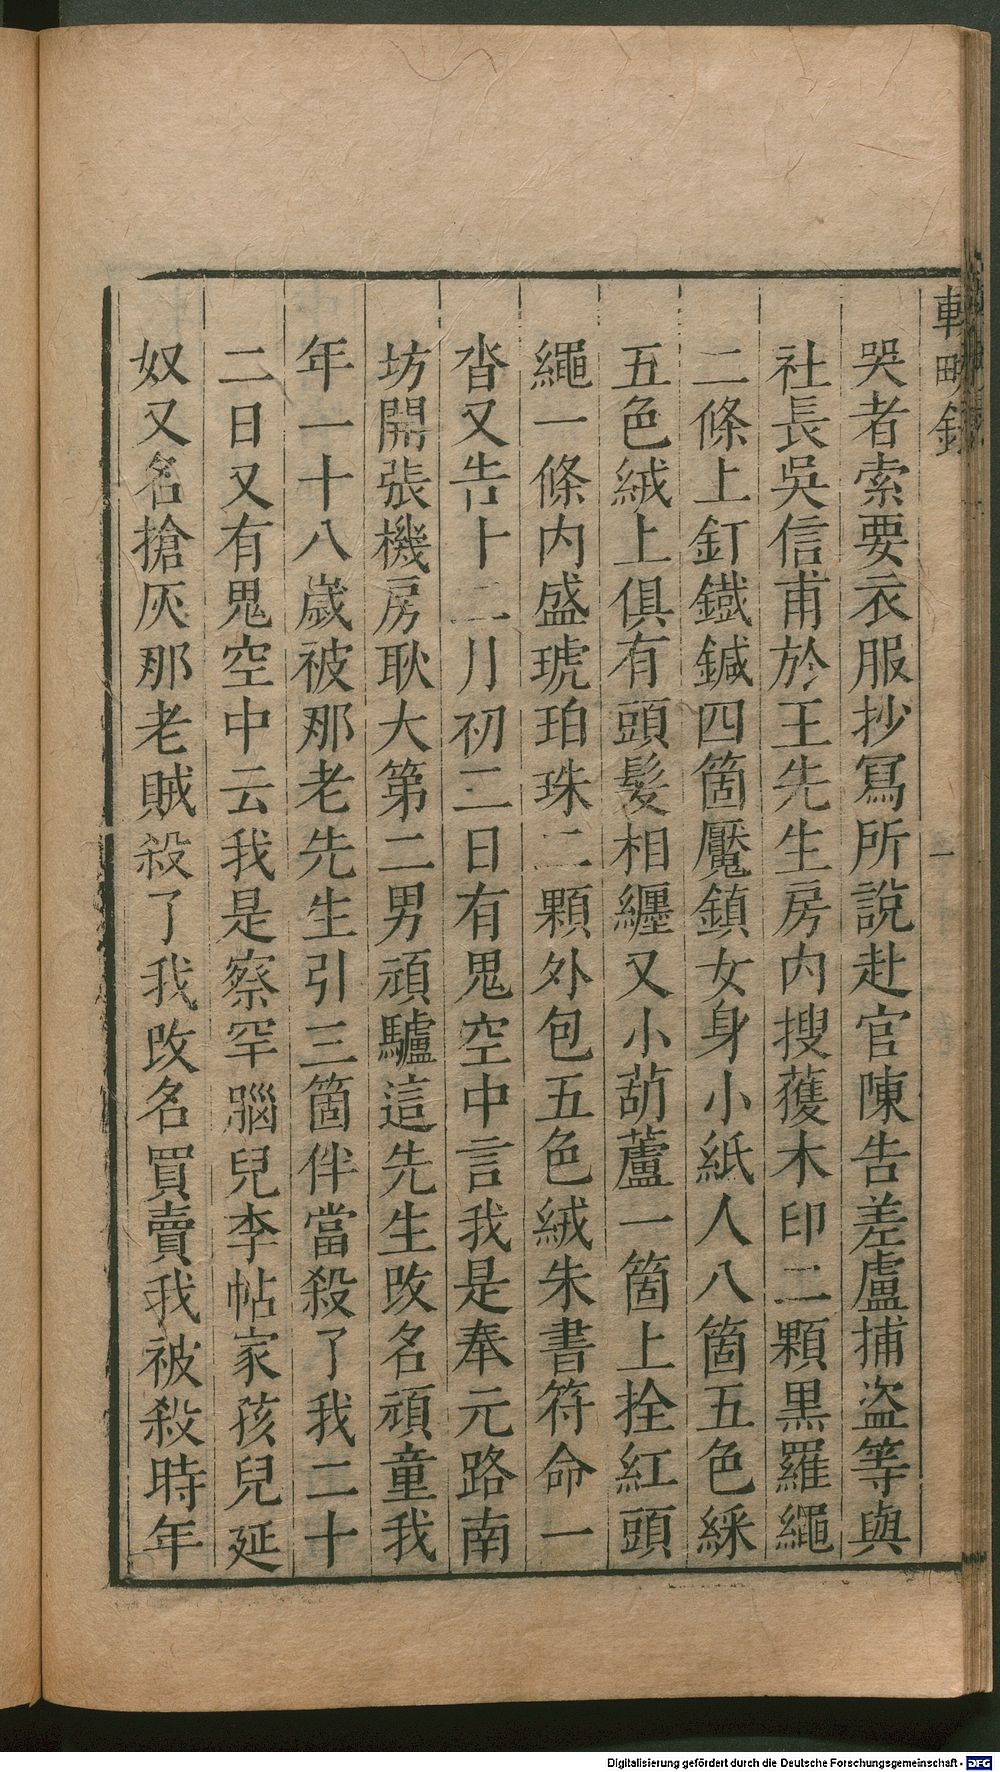 車田錄
一
哭者索要衣服抄寫所說赴官陳告差盧捕盜等與
社長吳信甫於王先生房内搜獲木印二顆黑羅繩
二條上釘鐵鍼四箇魘鎮女身小紙人八箇五色綵
五色絨上俱有頭髮相纏又小葫蘆一箇上拴紅頭
繩一條内盛琥珀珠二顆外包五色絨朱書符命一
沓又告十二月初二日有鬼空中言我是奉元路南
坊開張機房耿大第二男頑驢這先生改名頑童我
年一十八歲被那老先生引三箇伴當殺了我二十
二日又有鬼空中云我是察罕腦兒李帖家孩兒延
奴又名搶灰那老賊殺了我改名買賣我被殺時年
Digitalisierung gefördert durch die Deutsche Forschungsgemeinschaft - DFG